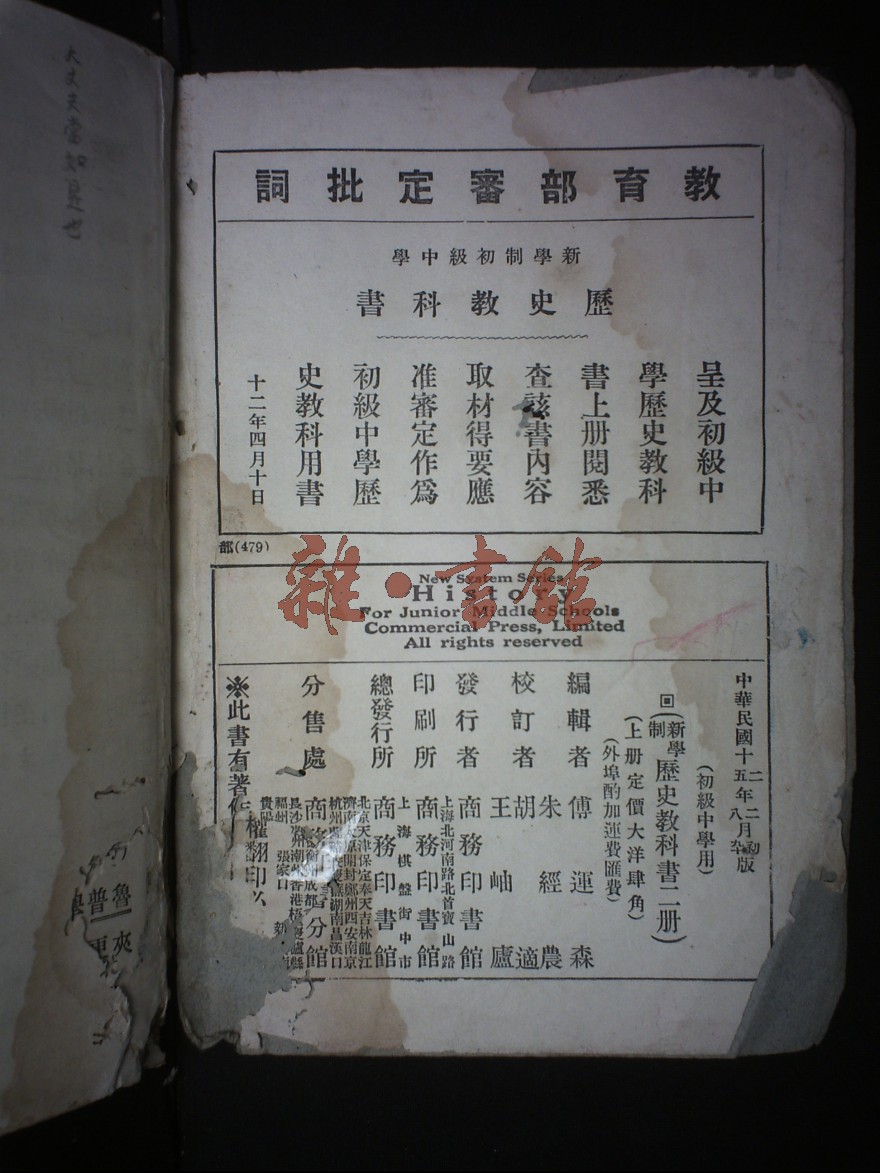 大丈夫當如是也
教育部審定批詞
新學制初級中學
歷史教科書
呈及初級中
學歷史教科
書上册閱悉
查該書內容
取材得要應
准審定作爲
初級中學歷
史教科用書
十二年四月十日
部(479)
雜·書館
New System Series
History
For Junior Middle Schools
Commercial Press, Limited
All rights reserved
中華民國十
(初級中學用)
回(新學制歷史教科書二册)
(上册定價大洋肆角)
(外埠酌加運費匯費)
編輯者 傅運森
朱經農
校訂者 胡適
王岫廬
發行者 商務印書館
上海北河南路北首寶山路
印刷所 商務印書館
上海棋盤街中市
總發行所 商務印書館
北京天津保定奉天吉林龍江
濟南太原開封鄭州西安南京
杭州
南昌漢口
長沙
分售處 商務印書分館
福州
張家口
※此書有著作權翻印必